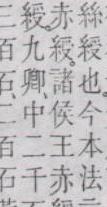 絲綬也。今本法
赤綬。諸侯王赤綬
綬、九卿、中二千石
三百石、二百石